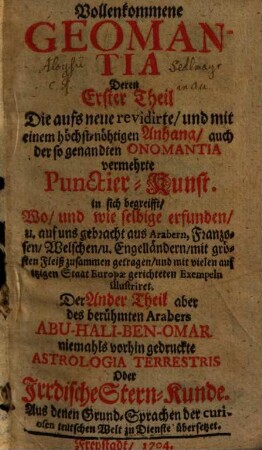 Vollenkommene
GEOMAN-
TIA
Deren
Erster Theil
Die aufs neue revidirte/ und mit
einem höchst-nöhtigen Anhang/ auch
der so genandten ONOMANTIA
vermehrte
Punctier-Kunst.
in sich begreifft/
Wo/ und wie selbige erfunden/
u. auf uns gebracht aus Arabern, Franzo-
sen/ Welschen/ u. Engelländern/ mit grös-
sten Fleiß zusammen getragen/ und mit vielen auf
itzigen Staat Europæ gerichteten Exempeln
illustriret.
Der Ander Theil aber
des berühmten Arabers
ABU-HALI-BEN-OMAR
niemahls vorhin gedruckte
ASTROLOGIA TERRESTRIS
Oder
Irrdische Stern-Kunde.
Aus denen Grund-Sprachen der curi-
osen teutschen Welt zu Dienste übersetzet.
Freystadt/ 1704.